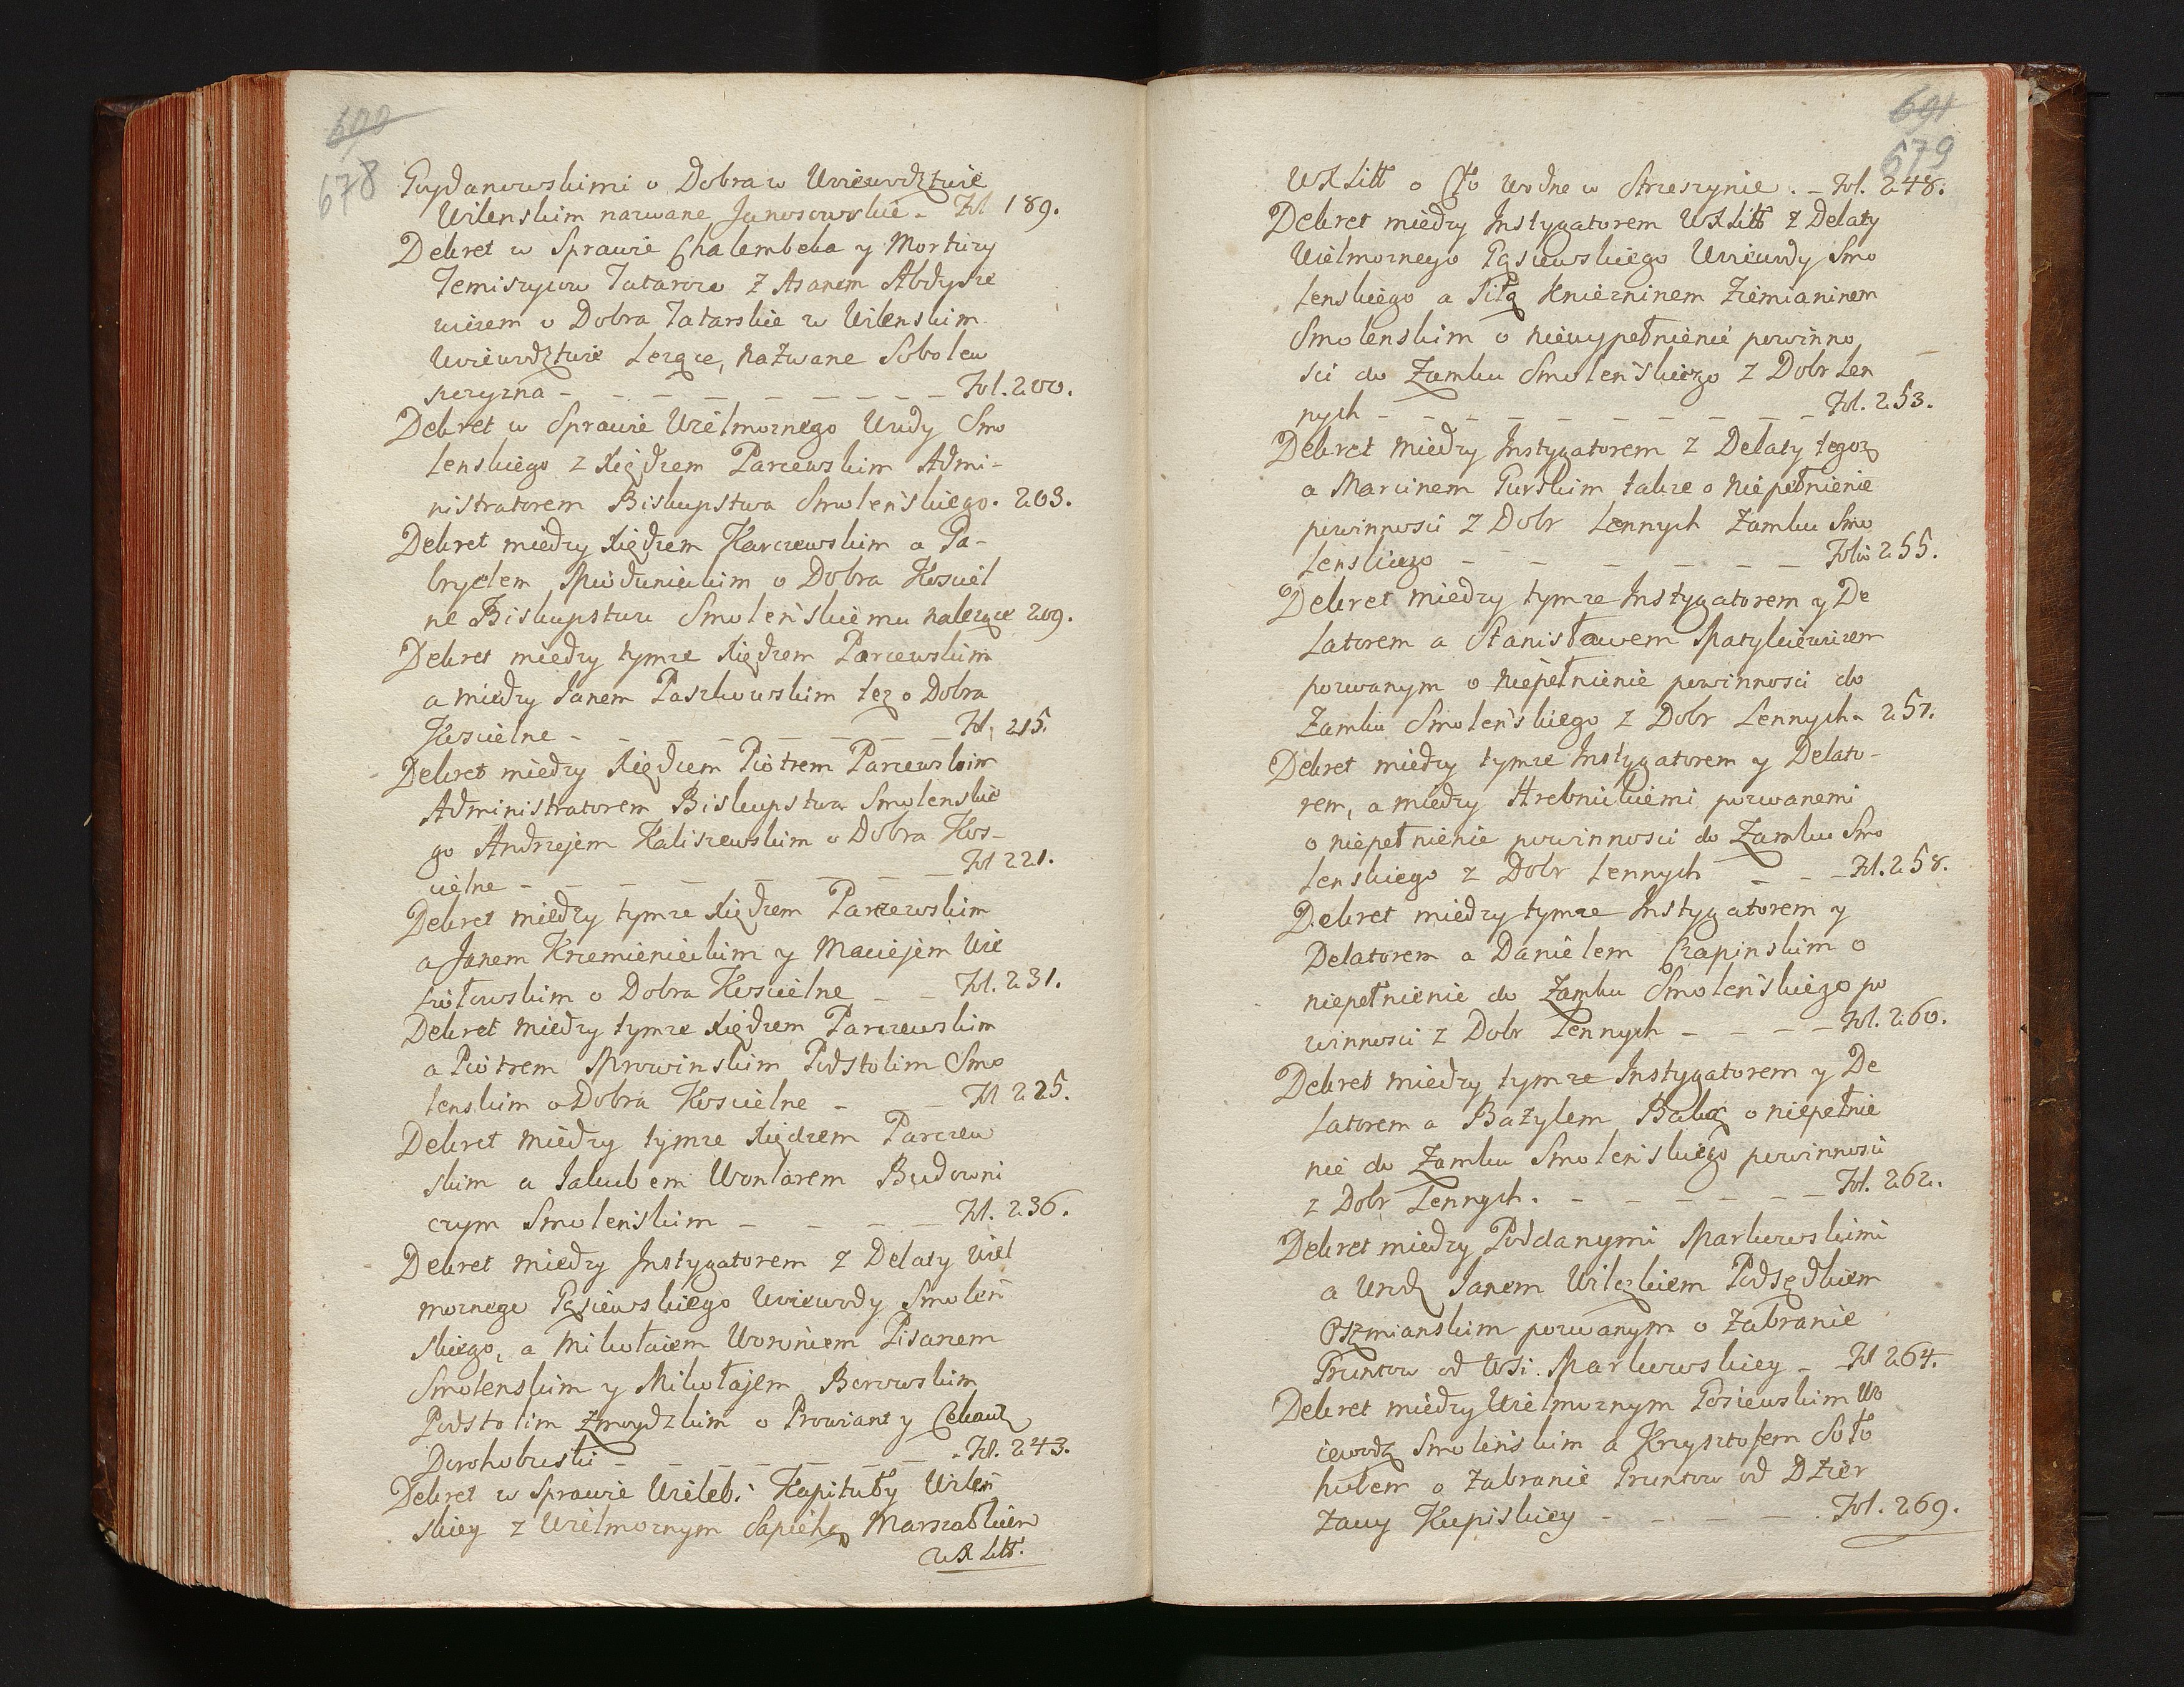 690
678
Gaydanowskimi o Dobra w Woiewodztwie
Wilenskim nazwane Janosowskie - Fol 189.
Dekret w Sprawie Chalembeka y Mortuzy
Temiszyow Tatarow z Asanem Abdysze
wizem o Dobra Tatarskie w Wilenskim
Woiewodztwie Lezące, nazwane Sobolew
szczyzna - - - - - - - - Fol. 200.
Dekret w Sprawie Wielmoznego Wwdy Smo
lenskiego z Xiędzem Parczewskim Admi-
nistratorem Biskupstwa Smoleńskiego. 203.
Dekret miedzy Xiędzem Karczewskim a Ga-
bryelem Spiodunickim o Dobra Kosciel
ne Biskupstwu Smoleńskiemu nalezące 209.
Dekret miedzy tymze Xiędzem Parczewskim
a miedzy Janem Paszkowskim tez o Dobra
Koscielne - - - - - - - - Fol. 215.
Dekret miedzy Xiędzem Piotrem Parczewskim
Administratorem Biskupstwa Smolenskie
go Andrzejem Kaliszewskim o Dobra Kos-
cielne - - - - - - - - Fol 221.
Dekret miedzy tymze Xiędzem Parczewskim
a Janem Krzemienieckim y Maciejem Wie
lziołowskim o Dobra Koscielne - - Fol. 231.
Dekret miedzy tymze Xiędzem Parczewskim
a Piotrem Skrowinskim Podstolim Smo
lenskim o Dobra Koscielne - - Fol 225.
Dekret miedzy tymze Xiędzem Parczew
skim a Jakubem Wonlarem Budowni
czym Smoleńskim - - - - Fol. 236.
Dekret miedzy Instygatorem z Delaty Wiel
moznego Gąsiewskiego Woiewody Smoleń
skiego, a Mikołaiem Woroncem Pisarzem
Smolenskim y Mikołajem Borowskim
Podstolim Zmoydzkim o Prowiant y Cekauz
Dorohobuski - - - - - - - Fol. 243.
Dekret w Sprawie Wieleb: Kapituły Wileń
skiey z Wielmoznym Sapiehą Marszałkiem
WX Litt.
691
679
WXLitt o Cło wodne w Strzeszynie. - Fol. 248.
Dekret miedzy Instygatorem WXLitt z Delaty
Wielmoznego Gąsiewskiego Woiewody Smo
lenskiego a Piłą Knieżninem Ziemianinem
Smolenskim o niewypełnienie powinno
sci do Zamku Smoleńskiego z Dobr Len
nych - - - - - - - - - Fol. 253.
Dekret miedzy Instygatorem z Delaty tegoz
a Marcinem Gurskim takze o niepełnienie
powinnosci z Dobr Lennych Zamku Smo
lenskiego - - - - - - Folio 255.
Dekret miedzy tymze Instygatorem y De
latorem a Stanisławem Spatykiewiczem
pozwanym o niepełnienie powinnosci do
Zamku Smoleńskiego z Dobr Lennych 257.
Dekret miedzy tymze Instygatorem y Delato-
rem, a miedzy Hrebnickiemi pozwanemi
o niepełnienie powinnosci do Zamku Smo
lenskiego z Dobr Lennych - - - Fol. 258.
Dekret miedzy tymze Instygatorem y
Delatorem a Danielem Czapinskim o
niepełnienie do Zamku Smoleńskiego po
winnosci z Dobr Lennych - - - - Fol. 260.
Dekret miedzy tymze Instygatorem y De
latorem a Bazylem Baką o niepełnie
nie do Zamku Smoleńskiego powinnosci
z Dobr Lennych. - - - - - - Fol. 262.
Dekret miedzy Poddanymi Sparkowskimi
a Urodz Janem Wilczkiem Podsędkiem
Oszmianskim pozwanym o Zabranie
Gruntow od Wsi Sparkowskiey - Fol 264.
Dekret miedzy Wielmoznym Gosiewskim Wo
iewodą Smoleńskim a Krzysztofem Soło
hubem o Zabranie Gruntow od Dzier
zawy Kupiskiey - - - - - Fol. 269.